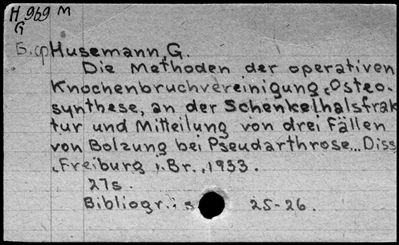 H 969 M
G
Б.ср Husemann, G.
Die Methoden der operativen
Knochenbruchvereinigung, Osteo-
synthese, an der Schenkelhalsfrak
tur und Mitteilung von drei Fällen
von Bolzung bei Pseudarthrose... Diss
Freiburg i. Br., 1933.
27s.
Bibliogr.: s 25-26.